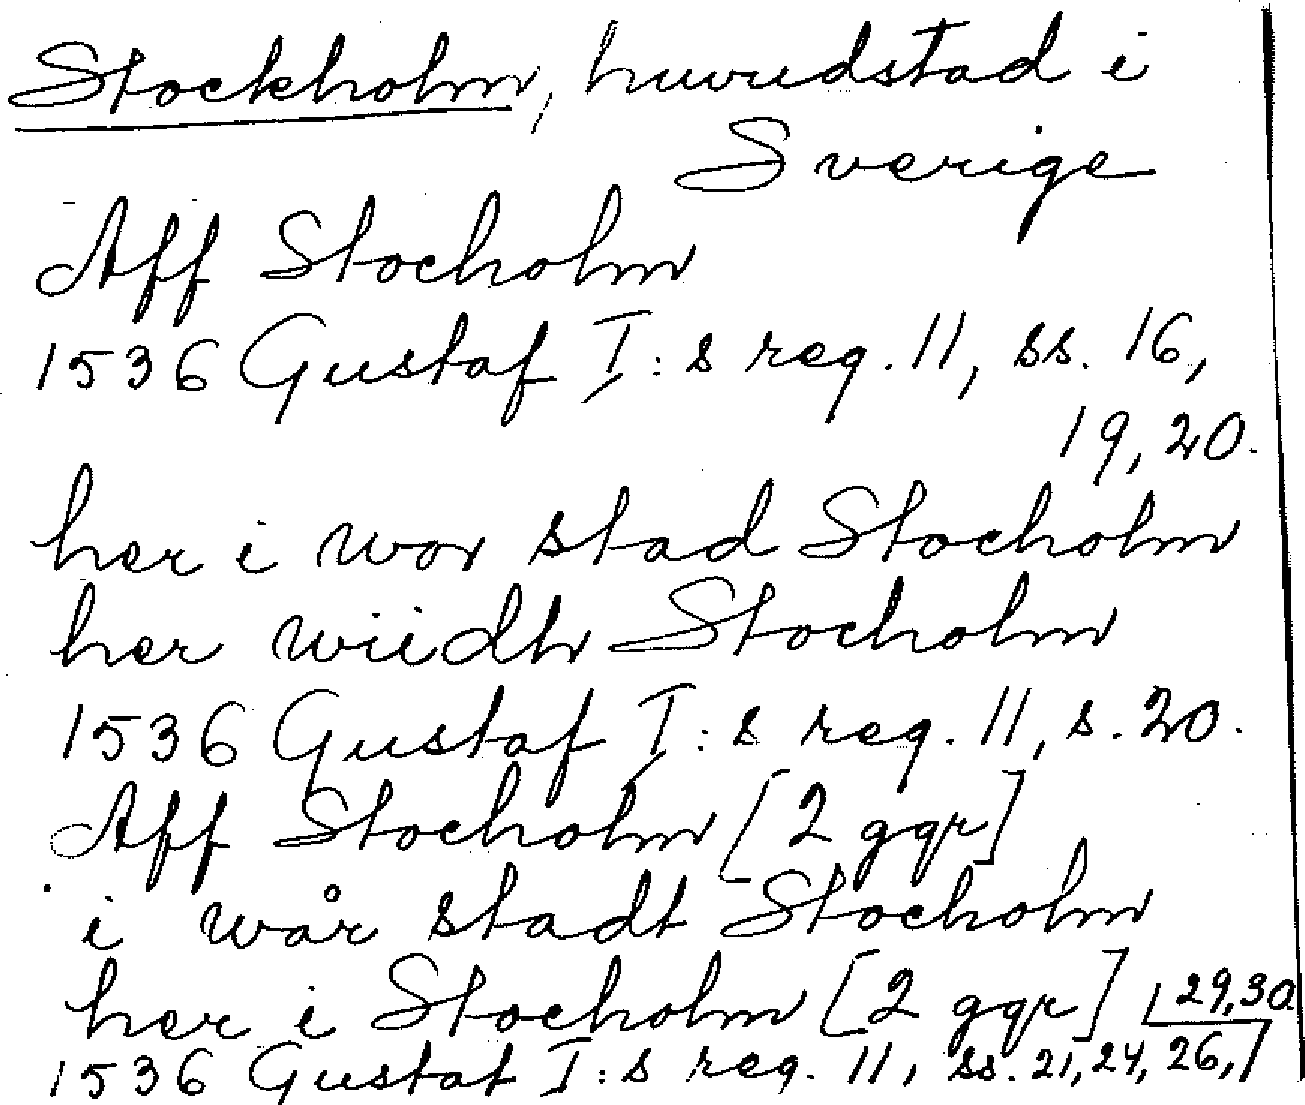 Stockholm, huvudstad i
Sverige
Aff Stocholm
1536 Gustaf I:s reg. 11, ss. 16,
19, 20.
her i wor stad Stocholm
her wiidh Stocholm
1536 Gustaf I:s reg. 11, s. 20.
Aff Stocholm [2 ggr]
i wår stadt Stocholm
her i Stocholm [2 ggr]
1536 Gustaf I:s reg. 11, ss. 21, 24, 26,
29, 30.